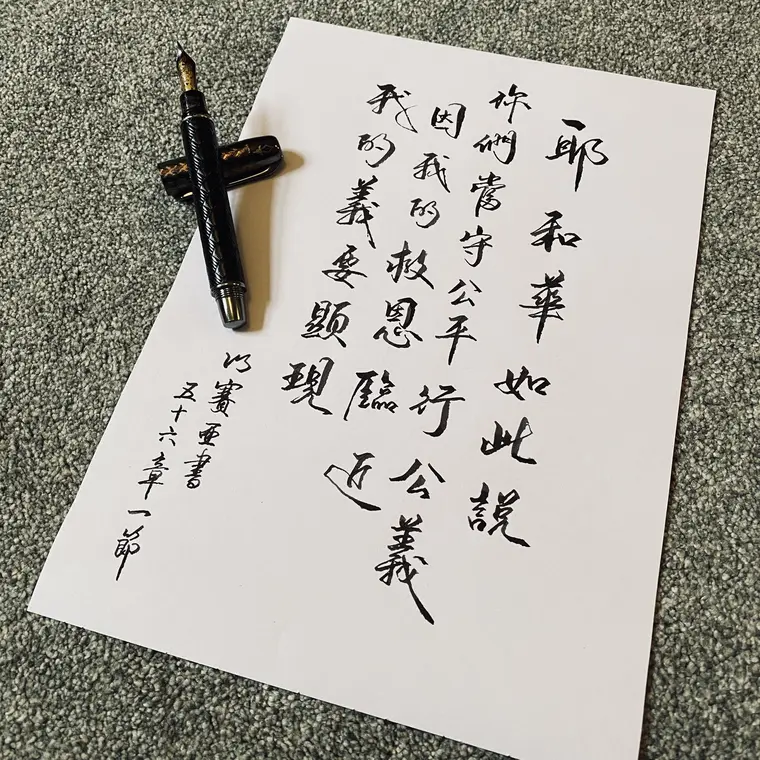 耶和華如此說
你們當守公平行公義
因我的救恩臨近
我的義要顯現
以賽亞書
五十六章一節